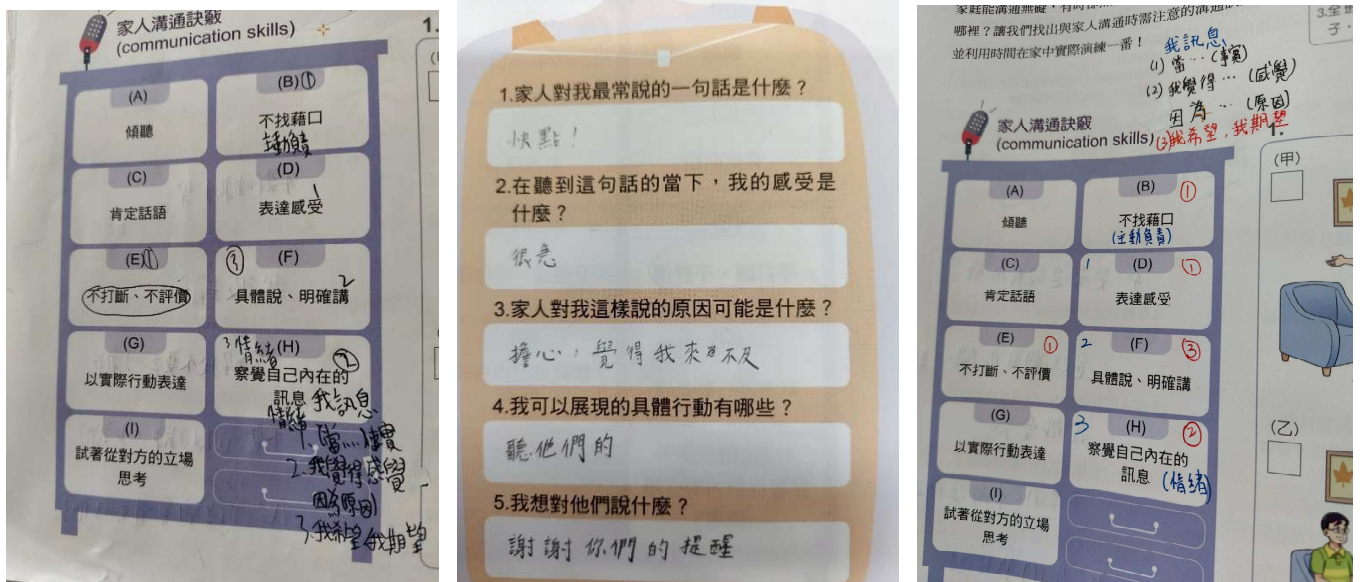 家人溝通訣竅
(communication skills)
1.
(A)
傾聽
(B) ①
不找藉口
主動負責
(C)
肯定話語
(D)
1
表達感受
(E) ①
不打斷、不評價
③ (F)
2
具體說、明確講
(G)
以實際行動表達
3 情緒 (H) ②
察覺自己內在的
訊息 我訊息
情緒
1. 當…事實
2. 我覺得感覺
因為原因
3. 我希望我期望
(I)
試著從對方的立場
思考
1.家人對我最常說的一句話是什麼？
快點！
2.在聽到這句話的當下，我的感受是
什麼？
很急
3.家人對我這樣說的原因可能是什麼？
擔心，覺得我來不及
4.我可以展現的具體行動有哪些？
聽他們的
5.我想對他們說什麼？
謝謝你們的提醒
哪裡？讓我們找出與家人溝通時需注意的溝通
並利用時間在家中實際演練一番！
我訊息
(1) 當… (事實)
(2) 我覺得… (感覺)
因為… (原因)
(3)我希望，我期望
家人溝通訣竅
(communication skills)
1.
(A)
傾聽
(B) ①
不找藉口
(主動負責)
(C)
肯定話語
1 (D) ①
表達感受
(E) ①
不打斷、不評價
2 (F) ③
具體說、明確講
(G)
以實際行動表達
3 (H) ②
察覺自己內在的
訊息 (情緒)
(I)
試著從對方的立場
思考
(甲)
(乙)
3.全
子，